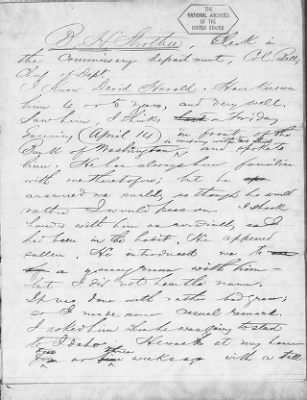 THE
NATIONAL ARCHIVES
OF THE
UNITED STATES
B. H. Strother, Clerk in
the Commissary department, C.C. Bell,
Chf of Dept.
I know David Harold. Have known
him 4 or 5 years, and very well.
Saw him, I think, a Friday
evening (April 14), in front of the
Bank of Washington, and spoke to
him. He has always been familiar
with me heretofore; but he
answered me surlily as though he would
rather I would pass on. I shook
hands with him as cordially as I
had been in the habit. He appeared
sullen. He introduced me to
a young man with him —
but I did not hear the name.
It was done with rather bad grace,
so I made some casual remark.
I asked him when he was going to start
to Idaho. He was at my house
two or three weeks ago with a